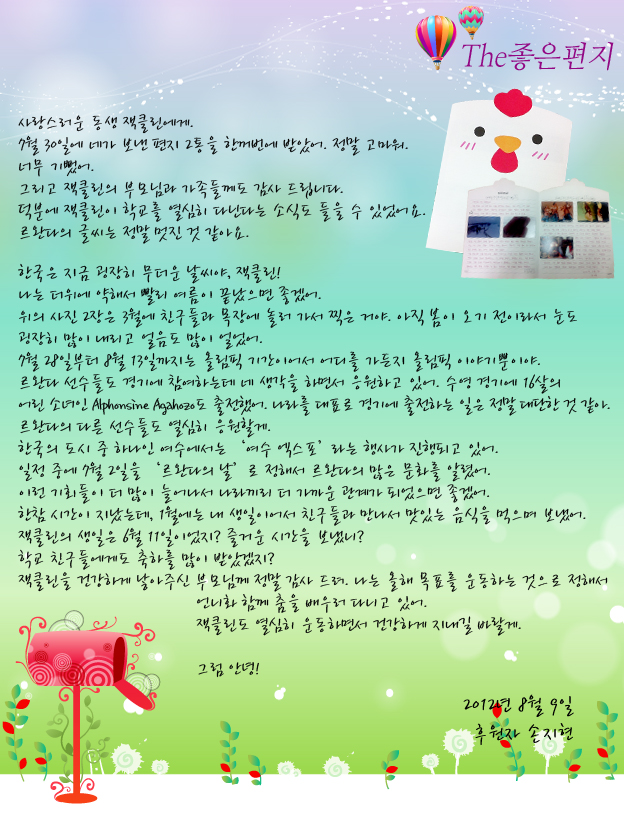 The좋은편지
사랑스러운 동생 잭클린에게.
7월 30일에 네가 보낸 편지 2통을 한꺼번에 받았어. 정말 고마워.
너무 기뻤어.
그리고 잭클린의 부모님과 가족들께도 감사 드립니다.
덕분에 잭클린이 학교를 열심히 다닌다는 소식도 들을 수 있었어요.
르완다의 글씨는 정말 멋진 것 같아요.
한국은 지금 굉장히 무더운 날씨야, 잭클린!
나는 더위에 약해서 빨리 여름이 끝났으면 좋겠어.
위의 사진 2장은 3월에 친구들과 목장에 놀러 가서 찍은 거야. 아직 봄이 오기 전이라서 눈도
굉장히 많이 내리고 얼음도 많이 얼었어.
7월 28일부터 8월 13일까지는 올림픽 기간이어서 어디를 가든지 올림픽 이야기뿐이야.
르완다 선수들도 경기에 참여하는데 네 생각을 하면서 응원하고 있어. 수영 경기에 16살의
어린 소녀인 Alphonsine Agahozo도 출전했어. 나라를 대표로 경기에 출전하는 일은 정말 대단한 것 같아.
르완다의 다른 선수들도 열심히 응원할게.
한국의 도시 중 하나인 여수에서는 '여수 엑스포'라는 행사가 진행되고 있어.
일정 중에 7월 2일을 '르완다의 날'로 정해서 르완다의 많은 문화를 알렸어.
이런 기회들이 더 많이 늘어나서 나라끼리 더 가까운 관계가 되었으면 좋겠어.
한참 시간이 지났는데, 1월에는 내 생일이어서 친구들과 만나서 맛있는 음식을 먹으며 보냈어.
잭클린의 생일은 6월 11일이었지? 즐거운 시간을 보냈니?
학교 친구들에게도 축하를 많이 받았겠지?
잭클린을 건강하게 낳아주신 부모님께 정말 감사 드려. 나는 올해 목표를 운동하는 것으로 정해서
언니와 함께 춤을 배우러 다니고 있어.
잭클린도 열심히 운동하면서 건강하게 지내길 바랄게.
그럼 안녕!
2012년 8월 9일
후원자 손지현